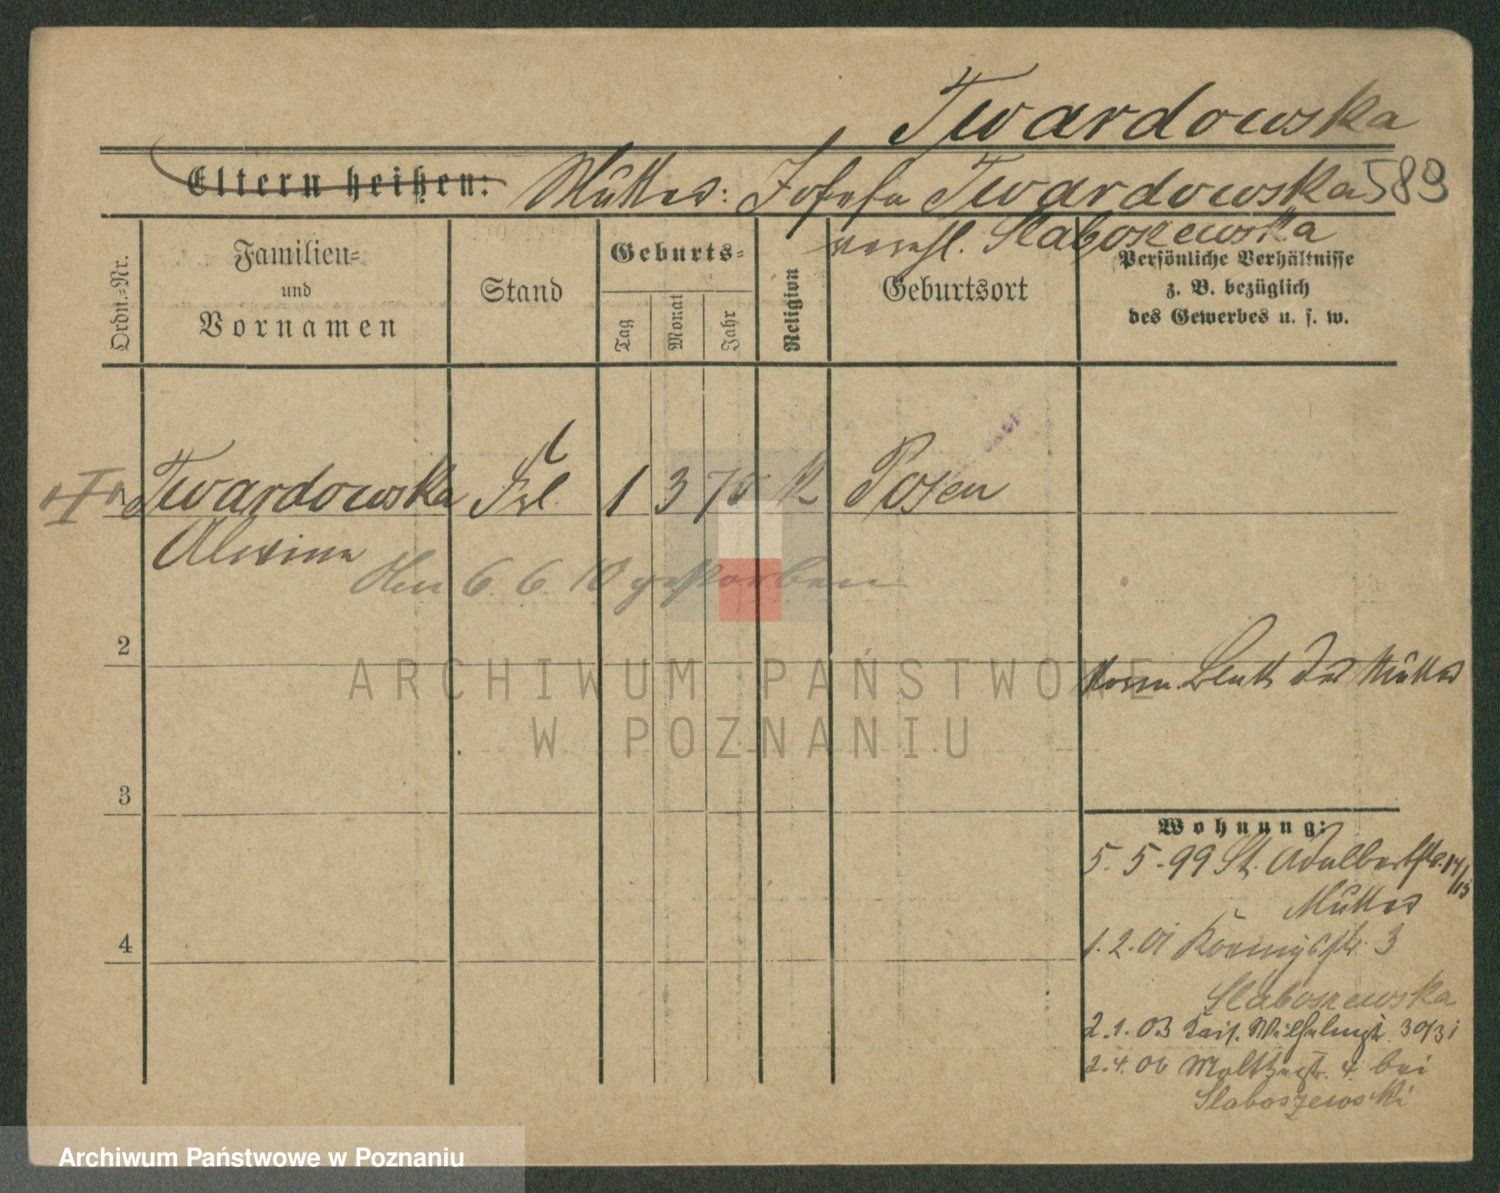 Twardowska
Eltern heißen: Mutter: Josefa Twardowska 589
verehl. Slaboszewska
Ordn.-Nr.
Familien-
und
Vornamen
Stand
Geburts-
Tag
Monat
Jahr
Religion
Geburtsort
Persönliche Verhältnisse
z. B. bezüglich
des Gewerbes u. s. w.
Twardowska Frl. 1 3 70 K Posen
Alexina
Am 6. 6. 10 gestorben
2
der Mutter
ARCHIWUM PAŃSTWOWE
W POZNANIU
3
Wohnung:
5. 5. 99 St. Adalbertstr. 14/15
Mutter
4
1. 2. 01 Koenigstr. 3
Slaboszewska
2. 1. 03 Kais. Wilhelmstr. 30/31
2. 4. 06 Moltkestr. 4. bei
Slaboszewski
Archiwum Państwowe w Poznaniu